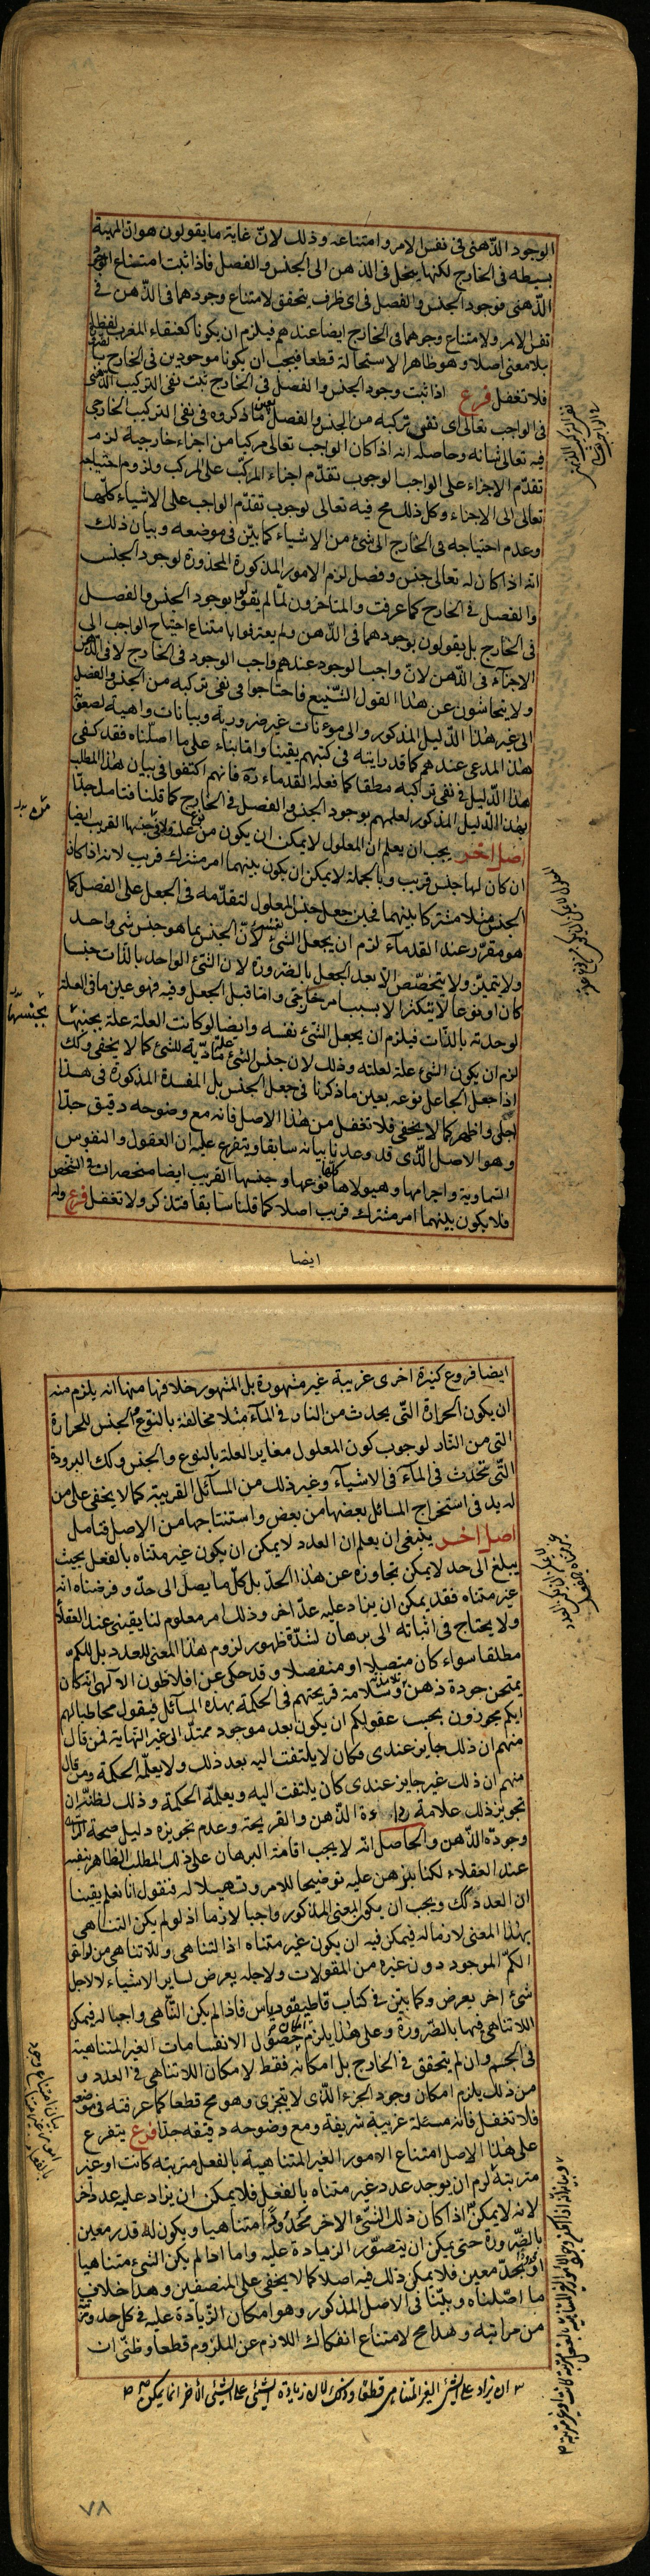 الوجود الذهنى فى نفس الامر وامتناعه وذلك لانّ غاية ما يقولون هو ان المهية
بسيطه فى الخارج لكنها ينحل فى الذهن الى الجنس والفصل فاذا ثبت امتناع الوجود
الذّهنى فوجود الجنس والفصل فى اى ظرف يتحقق لامتناع وجودهما فى الذّهن فى
نفس الامر ولامتناع وجودهما فى الخارج ايضا عندهم فيلزم ان يكونا كعنقاء المغرب لفظا
بلا معنى اصلا وهو ظاهر الاستحالة قطعا فيجب ان يكونا موجودين فى الخارج
فلا تغفل فرع اذا ثبت وجود الجنس والفصل فى الخارج ثبت نفى التركيب الذهنى
فى الواجب تعالى اى نفى تركبه من الجنس والفصل بعين ما ذكروه فى نفى التركيب الخارجى
فيه تعالى شانه وحاصله انه اذا كان الواجب تعالى مركبا من اجزاء خارجية لزم
تقدّم الاجزاء على الواجب لوجوب تقدّم اجزاء المركّب على المركب ولزوم احتياجه
تعالى الى الاجزاء وكل ذلك مح فيه تعالى لوجوب تقدّم الواجب على الاشياء كلّها
وعدم احتياجه فى الخارج الى شئ من الاشياء كما بيّن فى موضعه وبيان ذلك
انه اذا كان له تعالى جنس وفصل لزم الامور المذكورة المحذورة لوجود الجنس
والفصل فى الخارج كما عرفت والمتاخرون لما لم يقولوا بوجود الجنس والفصل
فى الخارج بل يقولون بوجودهما فى الذّهن ولم يعترفوا بامتناع احتياج الواجب الى
الاجزاء فى الذّهن لانّ واجب الوجود عندهم واجب الوجود فى الخارج لا فى الذهن
ولا يتحاشون عن هذا القول الشّنيع فاحتاجوا فى نفى تركبه من الجنس والفصل
الى غير هذا الدّليل المذكور والى مؤنات غير ضرورية وبيانات واهية لصعوبة
هذا المدعى عندهم كما قد رايته فى كتبهم يقينا وامّا بناء على ما اصّلناه فقد كفى
هذا الدّليل فى نفى تركبه مطلقا كما فعله القدماء ره فانهم اكتفوا فى بيان هذا المطلب
بهذا الدّليل المذكور لعلمهم بوجود الجنس والفصل فى الخارج كما قلنا فتامل جدّا
اصل اخر يجب ان يعلم ان المعلول لا يمكن ان يكون من نوع علته ولا من جنسها القريب ايضا
ان كان لها جنس قريب وبالجملة لا يمكن ان يكون بينهما امر مشترك قريب لانه اذا كان
الجنس مثلا مشتركا بينهما فحين جعل جنس المعلول لتقدّمه فى الجعل على الفصل كما
هو مقرّر عند القدماء لزم ان يجعل الشئ نفسه لانّ الجنس بما هو جنس شئ واحد
ولا يتميّز ولا يتخصّص الّا بعد الجعل بالضرورة لان الشئ الواحد بالذات جنسا
كان او نوعا لا يتكثر الا بسبب امر خارجى وامّا قبل الجعل وفيه فهو عين ما فى العلة
لوحدته بالذّات فيلزم ان يجعل الشئ نفسه وايضا لو كانت العلة علة بجنسها
لزم ان يكون الشئ علة لعلته وذلك لان جنس الشئ علة مادّية للشئ كما لا يخفى وكك
اذا جعل الجاعل نوعه بعين ما ذكرنا فى جعل الجنس بل المفسدة المذكورة فى هذا
اجلى واظهر كما لا يخفى فلا تغفل من هذا الاصل فانه مع وضوحه دقيق جدّا
وهو الاصل الذى قد وعدنا بيانه سابقا ويتفرع عليه ان العقول والنفوس
السّماوية واجرامها وهيولاها كلها نوعها وجنسها القريب ايضا منحصران فى الشّخص
فلا يكون بينهما امر مشترك قريب اصلا كما قلنا سابقا فتذكر ولا تغفل فرع وله
ايضا
ايضا فروع كثيرة اخرى غريبة غير مشهورة بل المشهور خلافها منها انه يلزم منه
ان يكون الحرارة التّى يحدث من النار فى الماء مثلا مخالفة بالنوع والجنس للحرارة
التى من النّار لوجوب كون المعلول مغاير العلة بالنوع والجنس وكك البرودة
التّى تحدث فى الماء فى الاشياء وغير ذلك من المسائل القريبة كما لا يخفى على من
له يد فى استخراج المسائل بعضها من بعض واستنتاجها من الاصل فتامل
اصل اخر ينبغى ان يعلم ان العدد لا يمكن ان يكون غير متناه بالفعل بحيث
يبلغ الى حد لا يمكن تجاوزه عن هذا الحدّ بل كلّ ما يصل الى حدّ وفرضناه انه
غير متناه فقد يمكن ان يزاد عليه عدّ اخر وذلك امر معلوم لنا يقينى عند العقلاء
ولا يحتاج فى اثباته الى برهان لشدّة ظهور لزوم هذا المعنى للعدد بل للكم
مطلقا سواء كان متصلا او منفصلا وقد حكى عن افلاطون الالهى انه كان
يمتحن جودة ذهن تلامذته وسلامة قريحتهم فى الحكمة بهذه المسائل فيقول مخاطبا لهم
ايكم يجوزون بحسب عقولكم ان يكون بعد موجود ممتدّ الى غير النّهاية فمن قال
منهم ان ذلك جايز عندى فكان لا يلتفت اليه بعد ذلك ولا يعلّمه الحكمة ومن قال
منهم ان ذلك غير جايز عندى كان يلتفت اليه ويعلمّه الحكمة وذلك لظنّه ان
تجويز ذلك علامة رداءة الذّهن والقريحة وعدم تجويزه دليل صحة القريحة
وجودة الذّهن والحاصل انه لا يجب اقامة البرهان على ذلك المطلب الظاهر بنفسه
عند العقلاء لكنا نبرهن عليه توضيحا للامر وتسهيلا له فنقول انا نعلم يقينا
ان العدد كك ويجب ان يكون المعنى المذكور واجبا لازما اذ لو لم يكن التناهى
بهذا المعنى لازما له فيمكن فيه ان يكون غير متناه اذ التناهى واللاتناهى من لواحق
الكمّ الموجود دون غيره من المقولات ولاجله يعرض لساير الاشياء لا لاجل
شئ اخر يعرض وكما بيّن فى كتاب قاطيقورياس فاذا لم يكن التّناهى واجبا له فيمكن
اللاتناهى فيها بالضّرورة وعلى هذا يلزم امكان حصول الانقسامات الغير المتناهية
فى الجسم وان لم يتحقق فى الخارج بل امكانه فقط لامكان اللاتناهى فى العدد و
من ذلك يلزم امكان وجود الجزء الذّى لا يتجزى وهو مح قطعا كما عرفته فى موضعه
فلا تغفل فانه مسئلة غريبة شريفة ومع وضوحه دقيقه جدّا فرع يتفرع
على هذا الاصل امتناع الامور الغير المتناهية بالفعل مترتبة كانت او غير
مترتبة لزم ان يوجد عدد غير متناه بالفعل فلا يمكن ان يزاد عليه عدد اخر
لانه لا يمكن اذا كان ذلك الشّئ الاخر محدودا متناهيا ويكون له قدر معين
بالضّرورة حتى يمكن ان يتصوّر الزيادة عليه واما اذا لم يكن الشئ متناهيا
او حدّ معين فلا يمكن ذلك فيه اصلا كما لا يخفى على المنصفين وهذا خلاف
ما اصّلناه وبيّنا فى الاصل المذكور وهو امكان الزّيادة عليه فى كل حد ومرتبة
من مراتبه وهذا مح لامتناع انفكاك اللازم عن الملزوم قطعا وظنّى ان
ان يزاد على الشئ الغير المتناهى قطعا وذلك لان زيادة الشئ على الشئ الاخر انما يمكن
بجنسها
٧٨